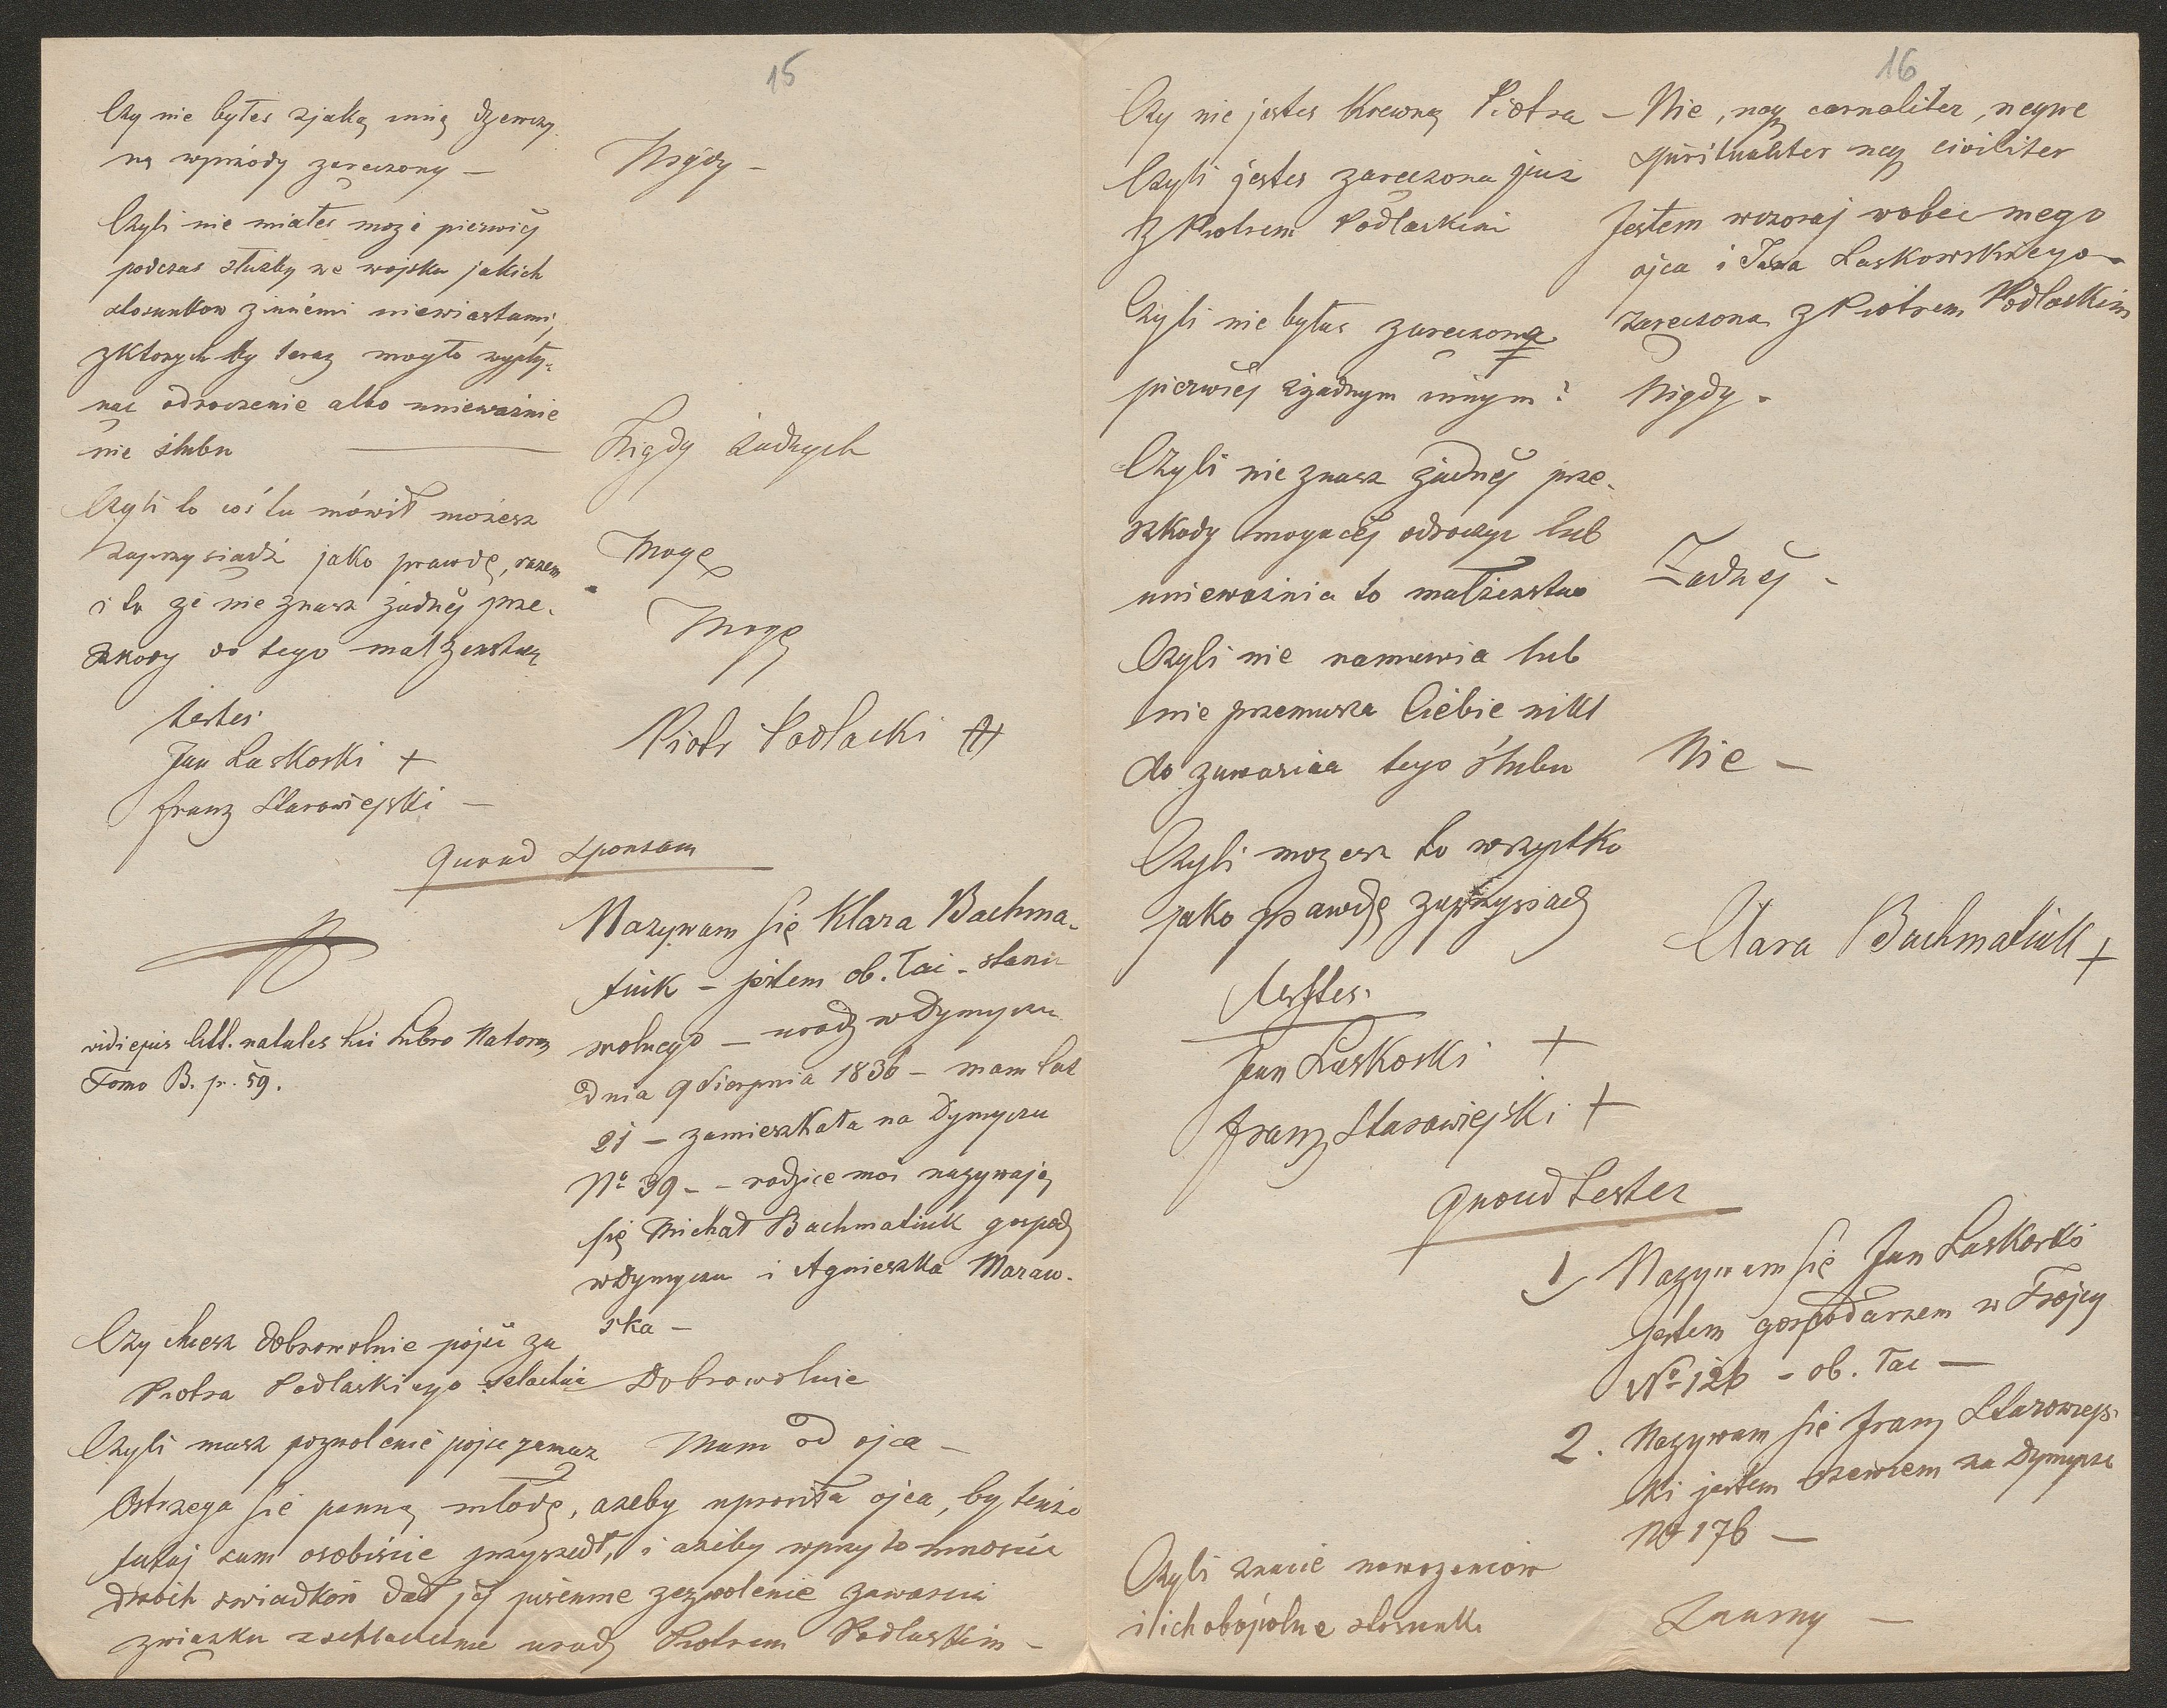 15
Czy nie byłes zjaką inną dzewczy
ną wprzódy zaręczony —
Nigdy —
Czyli nie miałes može pierwiéj
podczas służby we wojsku jakich
stosunkow zinnémi niewiastami,
zktorych by teraz mogło wypły-
nąc odroczenie albo unieważnie
nie ślubu —
Nigdy żadnych
Czyli to coś tu mówił możesz
zaprzysiądź jako prawdę, razem
i to że nie znasz żadnéj prze-
szkody do tego małzenstwa
Mogę
Mogę
testes
Jan Laskoski +
Franz Starowiejski —
Piotr Podlacki ++
quoad sponsam
Nazywam się Klara Bachma-
tiuk — jestem ob. łac. stanu
wolnego — urodz w Dymyczu
dnia 9 Sierpnia 1836 — mam lat
21 — zamieszkała na Dymyczu
No 39 — rodzice moi nazywają
się Michał Bachmatiuk gospod
w Dymyczu i Agnieszka Maraw-
ska —
vidi ejus litt. natales hic Libro Nator
Tomo B. p. 59.
Czy chcesz dobrowolnie pojść za
Piotra Podlaskiego
Dobrowolnie
Czyli masz pozwolenie pojsc zamąz
Mam od ojca —
Ostrzega się panną młodę, ażeby uprosiła ojca, by tenże
tutaj sam osobiście przyszedł, i ażeby wprzytomnosci
dwoch swiadkow dał jéj pisemne zezwolenie zawarcia
związku z urodz Piotrem Podlaskim —
16
Czy nie jestes Krewną Piotra
— Nie, neq carnaliter, neque
spiritualiter neq civiliter
Czyli jestes zaręczona juz
z Piotrem Podlaskim
Jestem wczoraj wobec mego
ojca i Jana Laskowskiego
zaręczona z Piotrem Podlaskim
Czyli nie byłas zaręczoną
pierwiéj zżadnym innym?
Nigdy —
Czyli nie znasz żadnéj prze-
szkody mogącéj odroczyc lub
unieważnic to małżenstwo
Żadnéj —
Czyli nie namawia lub
nie przemusza Ciébie nikt
do zawarcia tego ślubu
Nie —
Czyli mozesz to wszystko
jako prawdę zaprzysiadz
Clara Bachmatiuk +
testes
Jan Laskoski +
Franz Starowiejski +
quoad testes
1 Nazywam się Jan Laskoski
jestem gospodarzem w Trojcy
No 126 — ob. łac —
2. Nazywam się Franz Starowiejs
ki jestem szewcem na Dymyczu
No 176 —
Czyli znacie nowozencow
i ich obópolne stosunki
Znamy —